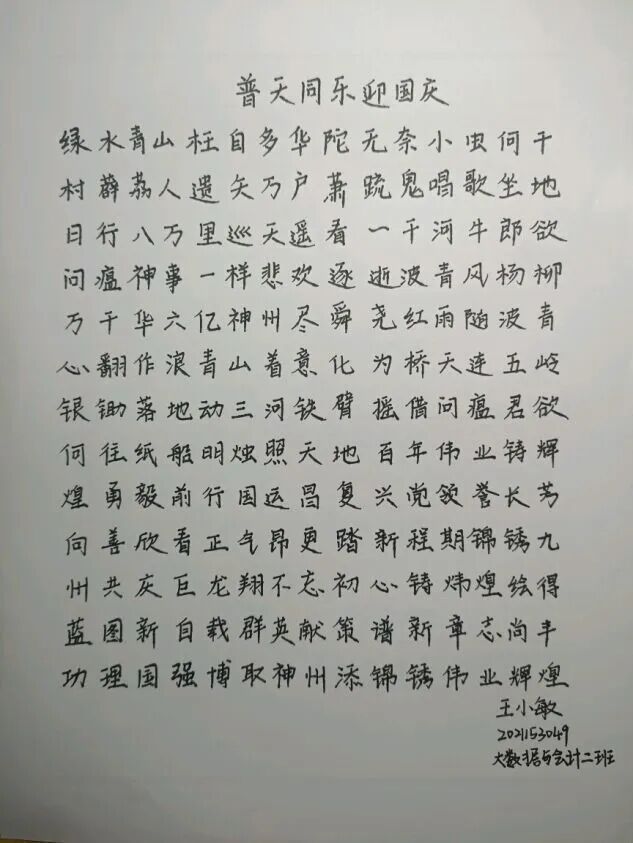 普天同乐迎国庆
绿水青山枉自多华陀无奈小虫何千
村薜荔人遗矢万户萧疏鬼唱歌坐地
日行八万里巡天遥看一千河牛郎欲
问瘟神事一样悲欢逐逝波青风杨柳
万千华六亿神州尽舜尧红雨随波青
心翻作浪青山着意化为桥天连五岭
银锄落地动三河铁臂摇借问瘟君欲
何往纸船明烛照天地百年伟业铸辉
煌勇毅前行国运昌复兴党领誉长芳
向善欣看正气昂更踏新程期锦锈九
州共庆巨龙翔不忘初心铸炜煌绘得
蓝图新自栽群英献策谱新章志尚丰
功理国强博取神州添锦锈伟业辉煌
王小敏
2021153049
大数据与会计二班